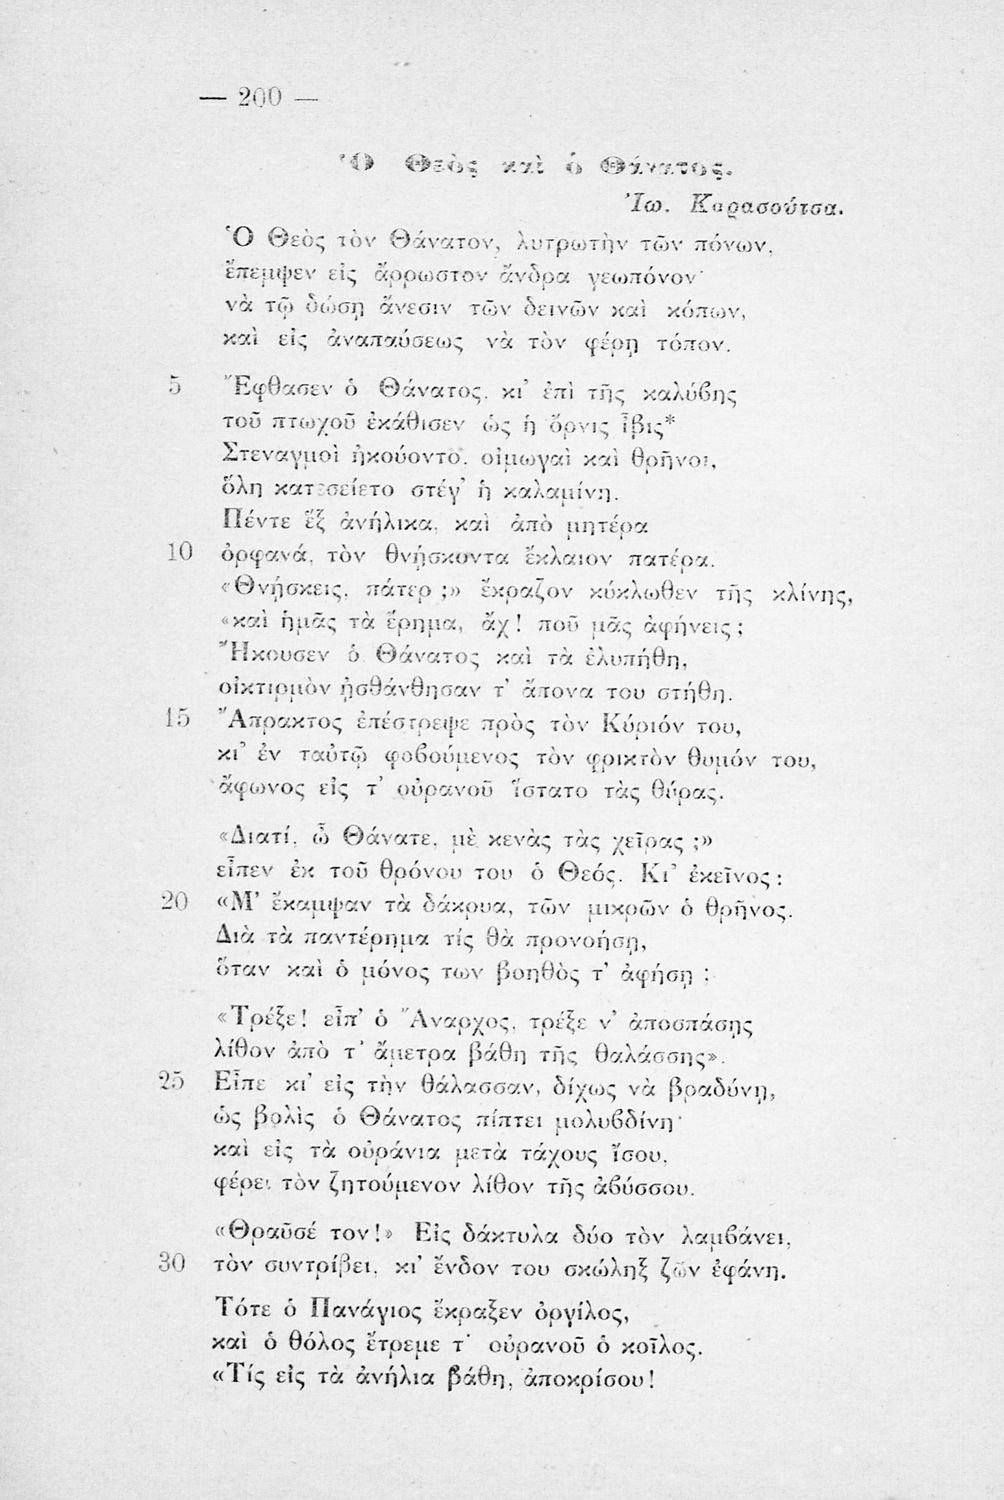 — 200 —
Ὁ Θεὸς καὶ ὁ Θάνατος.
Ἰω. Καρασούτσα.
Ὁ Θεὸς τὸν Θάνατον, λυτρωτὴν τῶν πόνων,
ἔπεμψεν εἰς ἄρρωστον ἄνδρα γεωπόνον·
νὰ τῷ δώσῃ ἄνεσιν τῶν δεινῶν καὶ κόπων,
καὶ εἰς ἀναπαύσεως νὰ τὸν φέρῃ τόπον.
5 Ἔφθασεν ὁ Θάνατος, κι’ ἐπὶ τῆς καλύβης
τοῦ πτωχοῦ ἐκάθισεν ὡς ἡ ὄρνις ἶβις*
Στεναγμοὶ ἠκούοντο, οἰμωγαὶ καὶ θρῆνοι,
ὅλη κατεσείετο στέγ’ ἡ καλαμίνη.
Πέντε ἓξ ἀνήλικα, καὶ ἀπὸ μητέρα
10 ὀρφανά, τὸν θνήσκοντα ἔκλαιον πατέρα.
«Θνήσκεις, πάτερ ;» ἔκραζον κύκλωθεν τῆς κλίνης,
«καὶ ἡμᾶς τὰ ἔρημα, ἄχ! ποῦ μᾶς ἀφήνεις ;
Ἤκουσεν ὁ Θάνατος καὶ τὰ ἐλυπήθη,
οἰκτιρμὸν ᾐσθάνθησαν τ’ ἄπονα του στήθη.
15 Ἄπρακτος ἐπέστρεψε πρὸς τὸν Κύριόν του,
κι’ ἐν ταὐτῷ φοβούμενος τὸν φρικτὸν θυμόν του,
ἄφωνος εἰς τ’ οὐρανοῦ ἵστατο τὰς θύρας.
«Διατί, ὦ Θάνατε, μὲ κενὰς τὰς χεῖρας ;»
εἶπεν ἐκ τοῦ θρόνου του ὁ Θεός. Κι’ ἐκεῖνος :
20 «Μ’ ἔκαμψαν τὰ δάκρυα, τῶν μικρῶν ὁ θρῆνος.
Διὰ τὰ παντέρημα τίς θὰ προνοήσῃ,
ὅταν καὶ ὁ μόνος των βοηθὸς τ’ ἀφήσῃ ;
«Τρέξε! εἶπ’ ὁ Ἄναρχος, τρέξε ν’ ἀποσπάσῃς
λίθον ἀπὸ τ’ ἄμετρα βάθη τῆς θαλάσσης».
25 Εἶπε κι’ εἰς τὴν θάλασσαν, δίχως νὰ βραδύνῃ,
ὡς βολὶς ὁ Θάνατος πίπτει μολυβδίνη·
καὶ εἰς τὰ οὐράνια μετὰ τάχους ἴσου,
φέρει τὸν ζητούμενον λίθον τῆς ἀβύσσου.
«Θραῦσέ τον!» Εἰς δάκτυλα δύο τὸν λαμβάνει,
30 τὸν συντρίβει, κι’ ἔνδον του σκώληξ ζῶν ἐφάνη.
Τότε ὁ Πανάγιος ἔκραξεν ὀργίλος,
καὶ ὁ θόλος ἔτρεμε τ’ οὐρανοῦ ὁ κοῖλος.
«Τίς εἰς τὰ ἀνήλια βάθη, ἀποκρίσου!